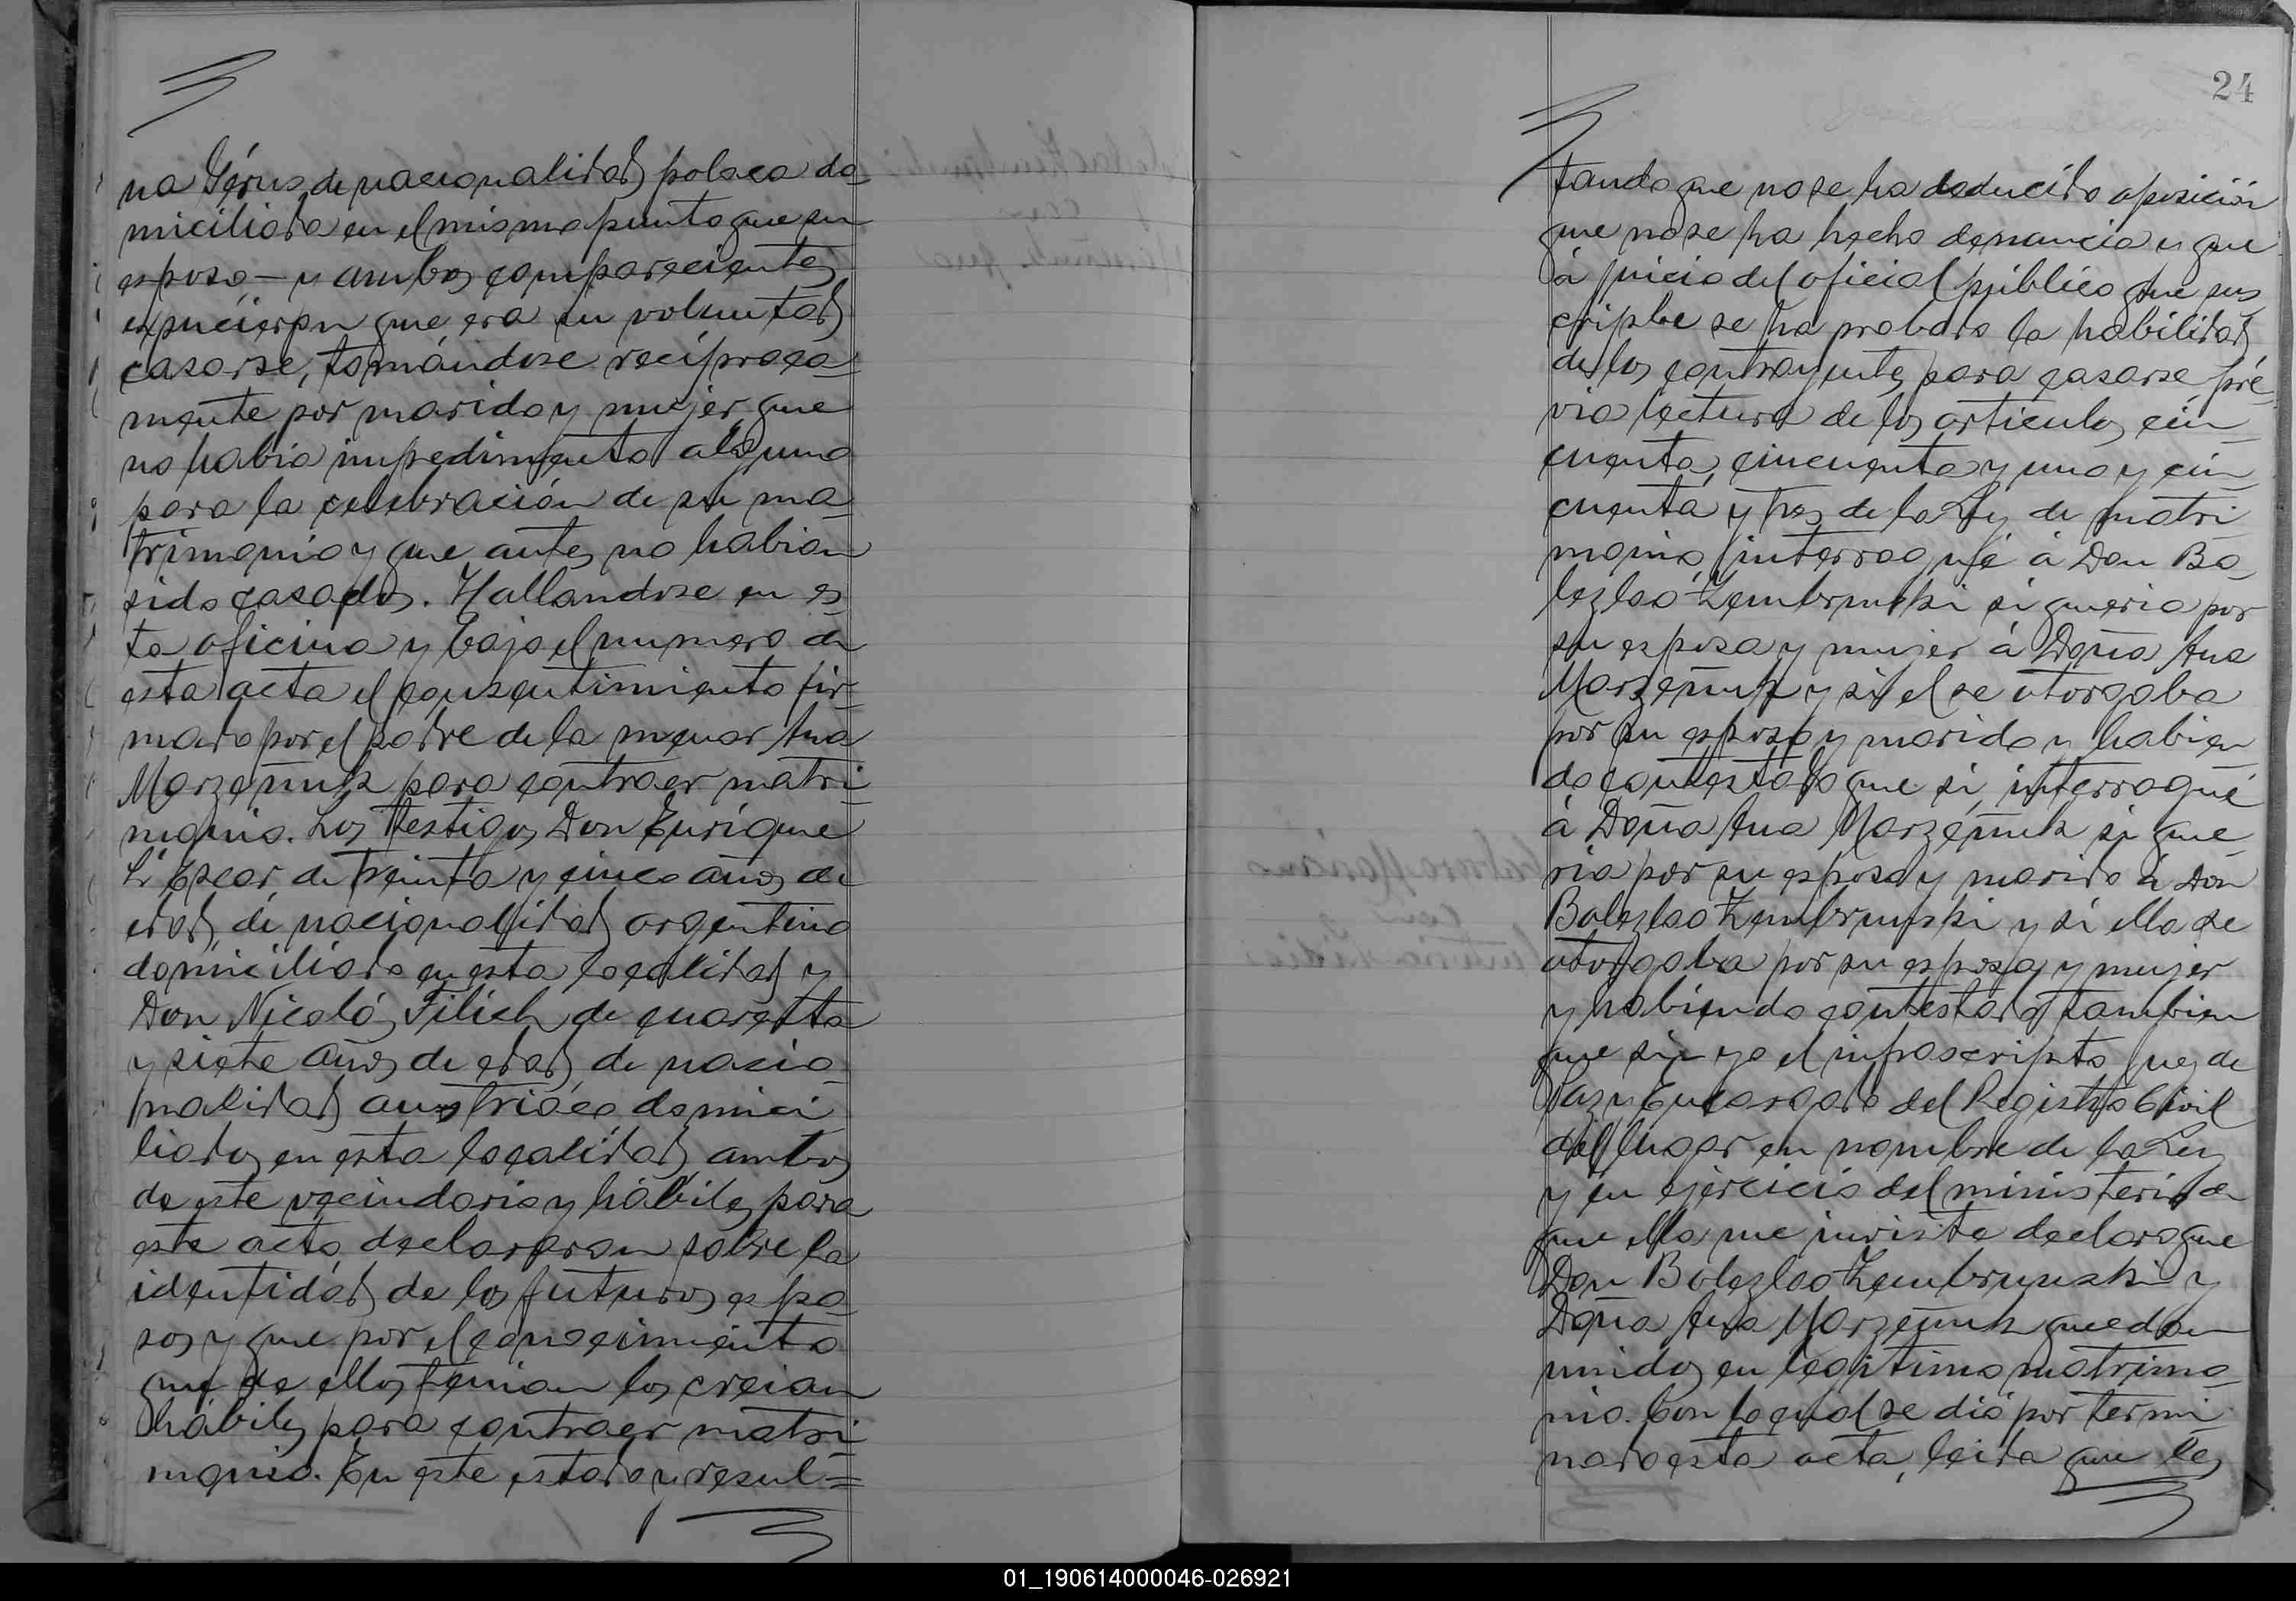 na Gérus de nacionalidad polaca do-
miciliada en el mismo punto que su
esposo — y ambos comparecientes
expucieron que era su voluntad
casarse, tomándose recíproca-
mente por marido y mujer que
no habia impedimento alguno
para la celebración de su ma-
trimonio y que antes no habian
sido casados. Hallandose en es-
ta oficina y bajo el numero de
esta acta el consentimiento fir-
mado por el padre de la menor Ana
para contraer matri-
monio. Los testigos Don Enrique
L. Escar de treinta y cinco años de
edad, de nacionalidad argentina
domiciliado en esta localidad y
Don Nicolás Filich de cuarenta
y siete años de edad de nacio-
nalidad austriáca domici-
liados en esta localidad ambos
de este vecindario y hábiles para
este acto declararon sobre la
identidad de los futuros espo-
sos y que por el conocimiento
que de ellos tenian los creian
hábiles para contraer matri-
monio. En este estado y resul=
24
tando que no se ha deducido oposición
que no se ha hecho denuncia y que
á juicio del oficial público que sus
cribe se ha probado la habilidad
de los contrayentes para casarse pré
via lectura de los articulos cin-
cuenta, cincuenta y uno y cin-
cuenta y tres de la Ley de matri
monio, interrogué á Don Bo-
lezlao Zembrunski si queria por
su esposa y mujer á Doña Ana
y si el se otorgaba
por su esposo y marido y habien-
do contestado que si, interrogué
á Doña Ana si que-
ria por su esposo y marido á Don
Bolezlao Zembrunski y si ella se
otorgaba por su esposa y mujer
y habiendo contestado tambien
que si yo el infrascripto Juez de
Paz y Encargado del Registro Civil
del lugar en nombre de la Ley
y en ejercicio del ministerio de
que ella me inviste declaro que
Don Bolezlao Zembrunski y
Doña Ana quedan
unidos en legítimo matrimo-
nio. Con lo cual se dió por termi
nado esta acta, leida que les
01_190614000046-026921